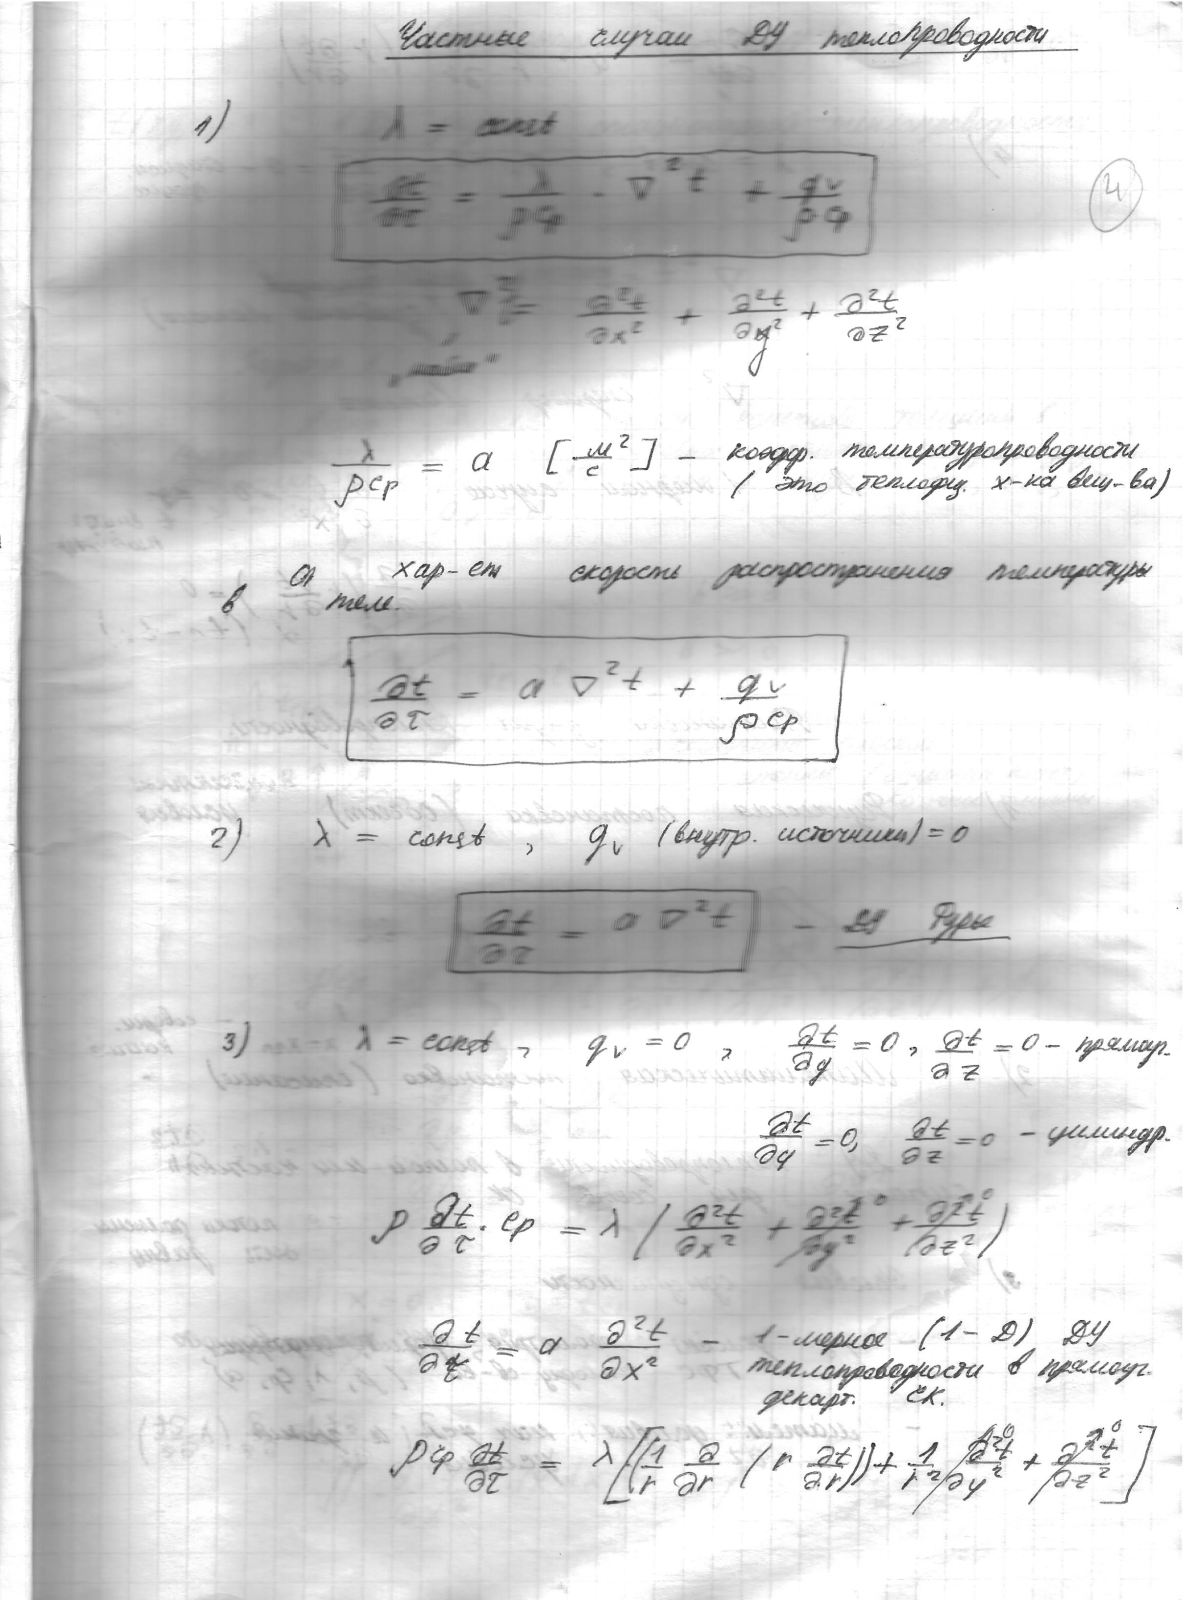 Частные случаи ДУ теплопроводности
1) λ = const
∂t/∂τ = λ/ρcp · ∇²t + qv/ρcp
4
∇² = ∂²t/∂x² + ∂²t/∂y² + ∂²t/∂z²
"набла"
λ/ρcp = a [м²/с] – коэфф. температуропроводности
( это теплофиз. х-ка вещ-ва)
a хар-ет скорость распространения температуры
в теле.
∂t/∂τ = a ∇²t + qv/ρcp
2) λ = const , qv (внутр. источники) = 0
∂t/∂τ = a ∇²t – ДУ Фурье
3) λ = const , qv = 0 , ∂t/∂y = 0 , ∂t/∂z = 0 – прямоуг.
∂t/∂φ = 0, ∂t/∂z = 0 – цилиндр.
ρ ∂t/∂τ · cp = λ ( ∂²t/∂x² + ∂²t/∂y² 0 + ∂²t/∂z² 0 )
∂t/∂τ = a ∂²t/∂x² – 1-мерное (1-D) ДУ
теплопроводности в прямоуг.
декарт. СК.
ρcp ∂t/∂τ = λ [(1/r ∂/∂r ( r ∂t/∂r )) + 1/r² ∂²t/∂φ² 0 + ∂²t/∂z² 0 ]